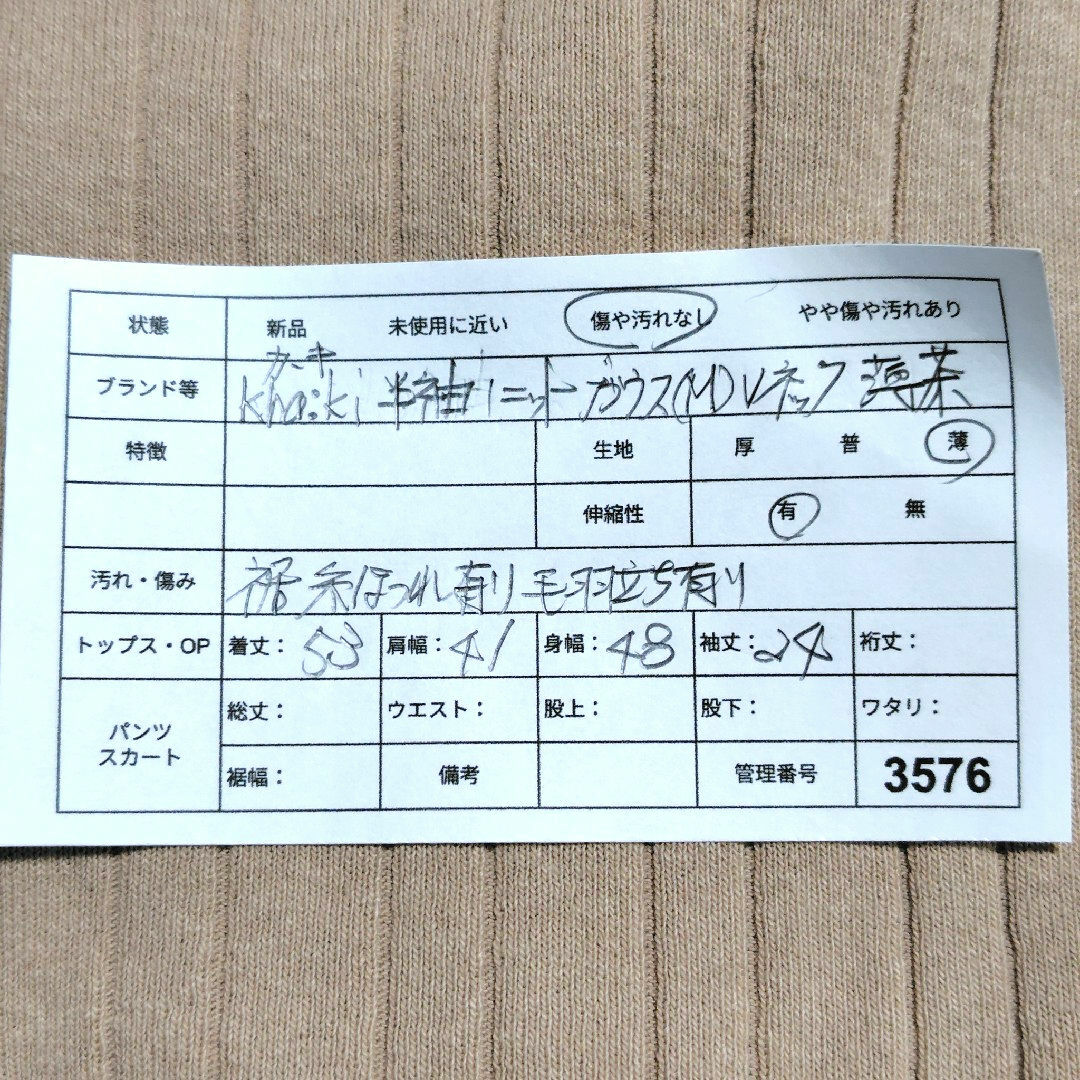 状態 新品 未使用に近い 傷や汚れなし やや傷や汚れあり
カーキ
ブランド等 kha:ki 半袖ニット ブラウス(M) Vネック 薄茶
特徴 生地 厚 普 薄
伸縮性 有 無
汚れ・傷み 裾糸ほつれ有り 毛羽立ち有り
トップス・OP 着丈: 53 肩幅: 41 身幅: 48 袖丈: 24 裄丈:
パンツ 総丈: ウエスト: 股上: 股下: ワタリ:
スカート
裾幅: 備考 管理番号 3576